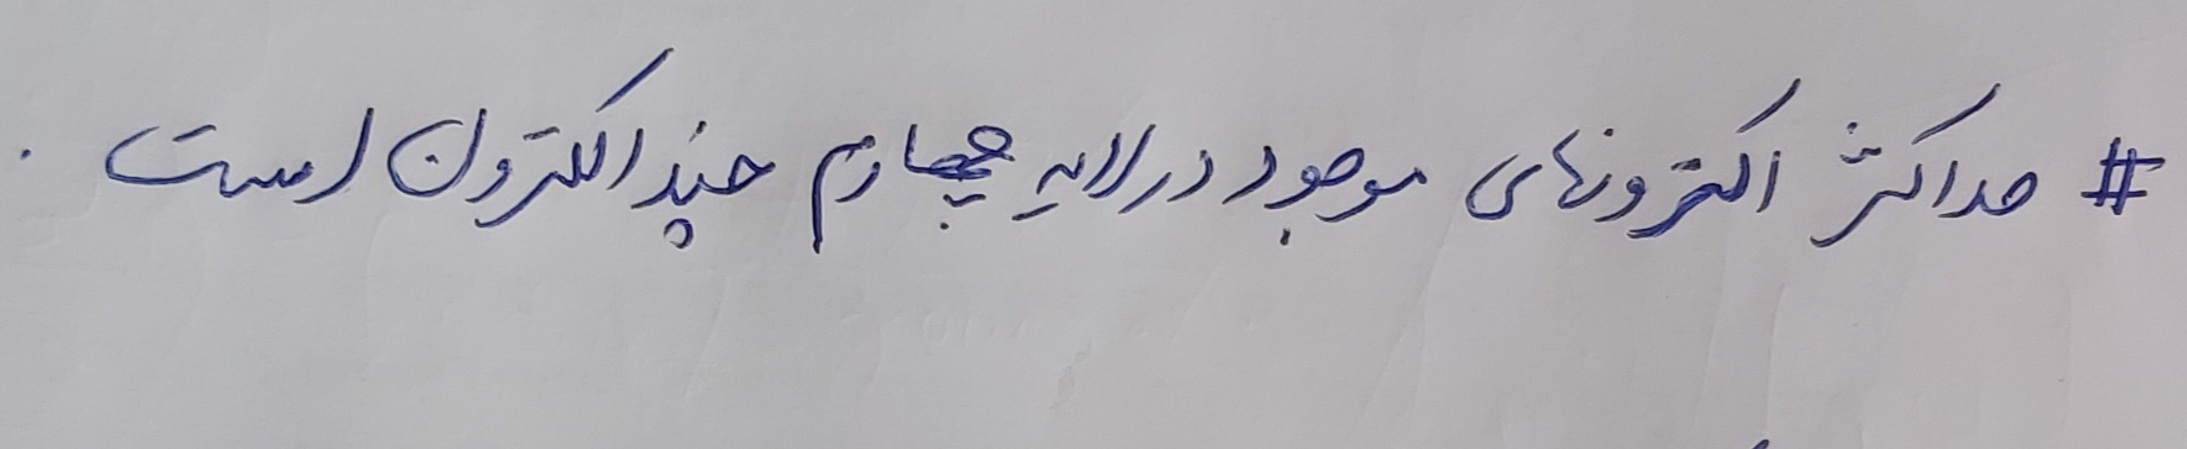 # حداکثر الکترونهای موجود در لایه چهارم چند الکترون است .